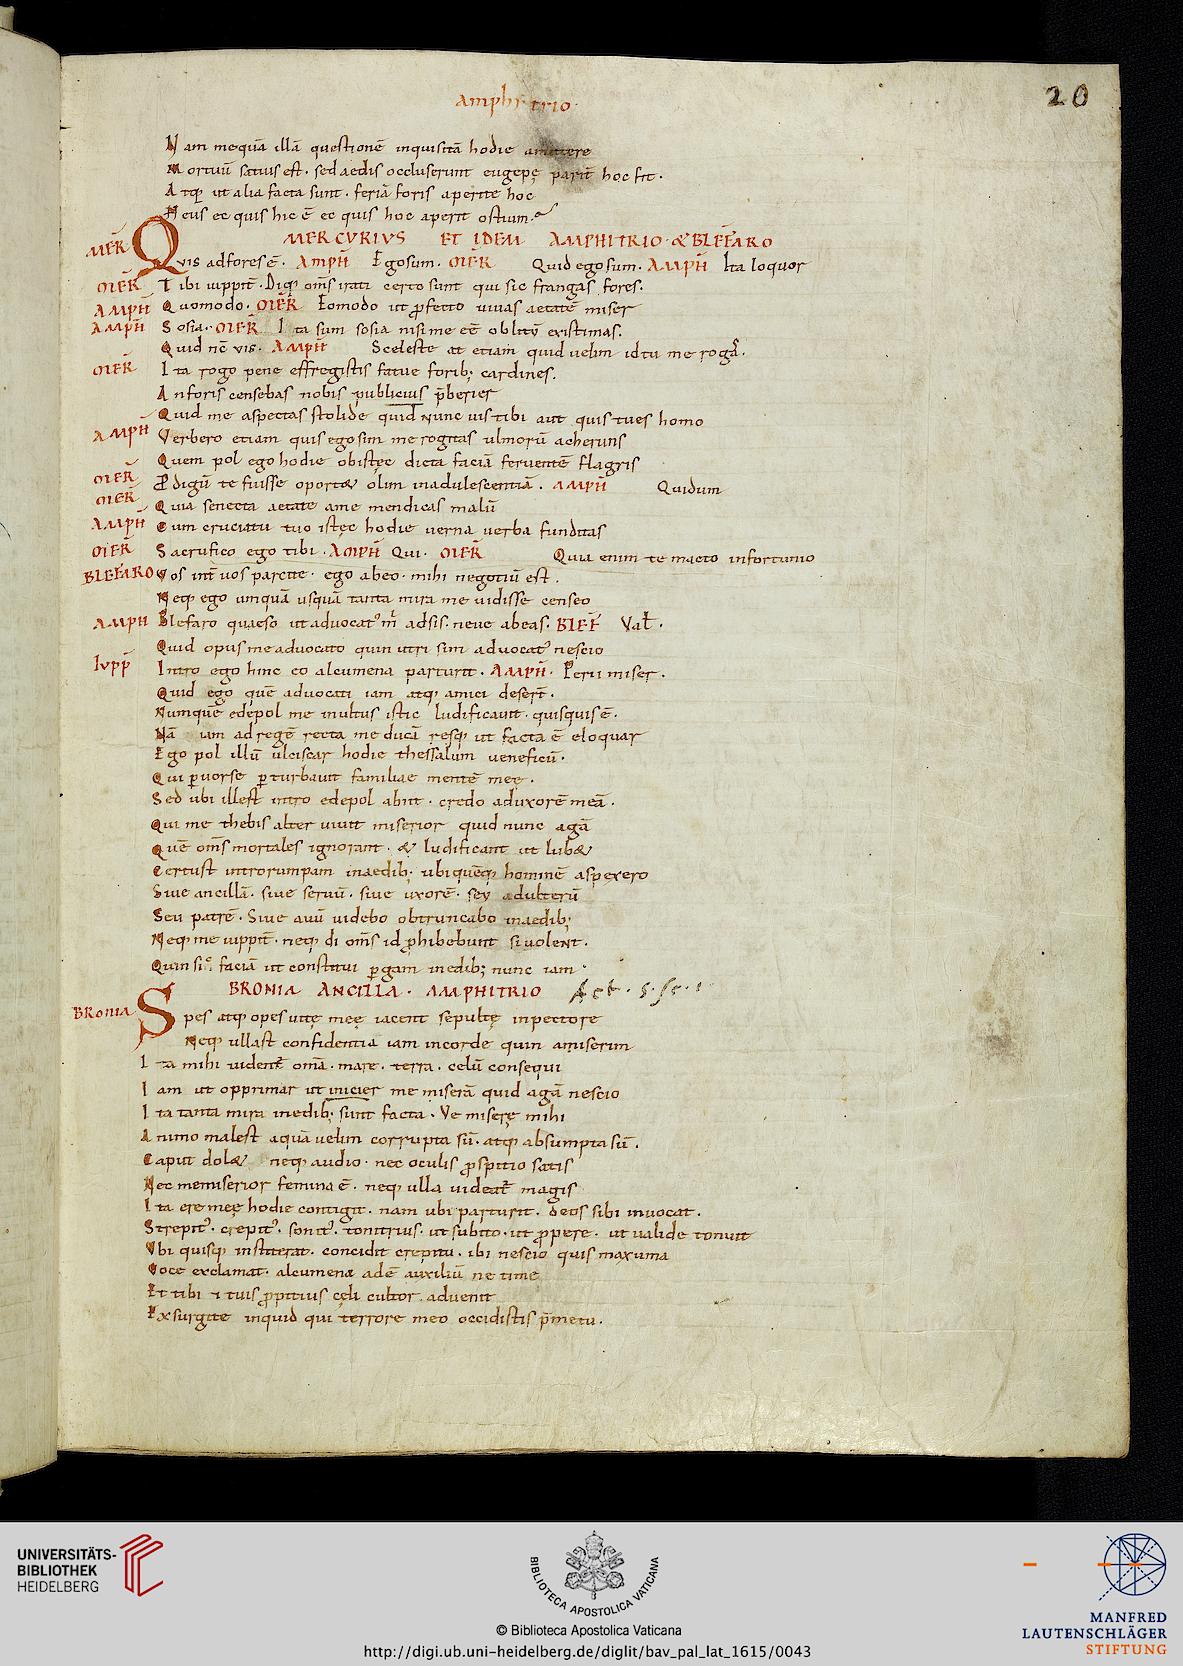 amphitrio
20
Nam mequā illā questionē inquisitā hodie amittere
Mortuū satius est · sed aedis occluserunt eugepę parit̄ hoc fit ·
Atq; ut alia facta sunt · feriā foris aperite hoc
Heus ec quis hic ē ec quis hoc aperit ostium ·
MERCVRIVS ET IDEM AMPHITRIO · & BLEFARO
MER̄ Quis adfores ē · AMPH̄ Egosum · MER̄ Quid egosum · AMPH̄ Ita loquor
MER̄ Tibi iuppit̄ · Diq; om̄s irati certo sunt qui sic frangas fores ·
AMPH̄ Quomodo · MER̄ Eomodo ut p̄fecto uiuas aetatē miser
AMPH̄ Sosia · MER̄ Ita sum sosia nisi me eē oblitū existimas ·
Quid nē vis · AMPH̄ Sceleste at etiam quid uelim id tu me rogas ·
MER̄ Ita rogo pene effregistis fatue forib; cardines ·
An foris censebas nobis publicius p̄berier
Quid me aspectas stolide quid nunc uis tibi aut quis tu es homo
AMPH̄ Verbero etiam quis ego sim me rogitas ulmorū acheruns
Quem pol ego hodie ob istęc dicta faciā feruentē flagris
MER̄ P̄digū te fuisse oportet olim in adulescentiā · AMPH̄ Quidum
MER̄ Quia senecta aetate a me mendicas malū
AMPH̄ Cum cruciatu tuo istęc hodie uerna uerba funditas
MER̄ Sacrufico ego tibi · AMPH̄ Qui · MER̄ Quia enim te macto infortunio
BLEFARO Vos int̄ uos partite · ego abeo · mihi negotiū est ·
Neq; ego umquā usquā tanta mira me uidisse censeo
AMPH̄ Blefaro quaeso ut aduocat' m̄ adsis · neue abeas · BLEF̄ Val̄ ·
Quid opus me aduocato quin utri sim aduocat' nescio
IVPP̄ Intro ego hinc eo alcumena parturit · AMPH̄ · Perii miser ·
Quid ego quē aduocati iam atq; amici desert̄ ·
Numquē edepol me inultus istic ludificauit · quisquis ē ·
Nā iam ad regē recta me ducā resq; ut facta ē eloquar
Ego pol illū ulciscar hodie thessalum ueneficū ·
Qui p̱uorse p̱turbauit familiae mentē meę ·
Sed ubi illest intro edepol abiit · credo ad uxorē meā ·
Qui me thebis alter uiuit miserior quid nunc agā
Quē om̄s mortales ignorant · & ludificant ut lub&
Certust intro rumpam in aedib; ubi quēq; hominē aspexero
Siue ancillā · siue seruū · siue uxorē · seu adulterū
Seu patrē · Siue auū uidebo obtruncabo in aedib;
Neq; me iuppit̄ · neq; di om̄s id p̄hibebunt si uolent ·
Quin sic faciā ut constitui p̱gam in edib; nunc iam ·
BROMIA ANCILLA · AMPHITRIO Act · 5 · sc · 1
BROMIA Spes atq; opes uitę meę iacent sepultę in pectore
Neq; ullast confidentia iam in corde quin amiserim
Ita mihi uident̄ omā · mare · terra · celū consequi
Iam ut opprimar ut inicier me miserā quid agā nescio
Ita tanta mira in edib; sunt facta · Ve miserę mihi
Animo malest aquā uelim corrupta sū · atq; absumpta sū ·
Caput dol& neq; audio · nec oculis p̄spitio satis
Nec me miserior femina ē · neq; ulla uideat̄ magis
Ita ere meę hodie contigit · nam ubi parturit · deos sibi inuocat ·
Strepit' · crepit' · sonit' · tonitrus · ut subito · ut p̄pere · ut ualide tonuit
Vbi quisq; institerat · concidit crepitu · ibi nescio quis maxuma
Voce exclamat · alcumena adē auxiliū ne time
Et tibi & tuis p̄pitius cęli cultor aduenit
Exsurgite inquid qui terrore meo occidistis p̄metu ·
UNIVERSITÄTS-
BIBLIOTHEK
HEIDELBERG
BIBLIOTECA APOSTOLICA VATICANA
© Biblioteca Apostolica Vaticana
http://digi.ub.uni-heidelberg.de/diglit/bav_pal_lat_1615/0043
MANFRED
LAUTENSCHLÄGER
STIFTUNG